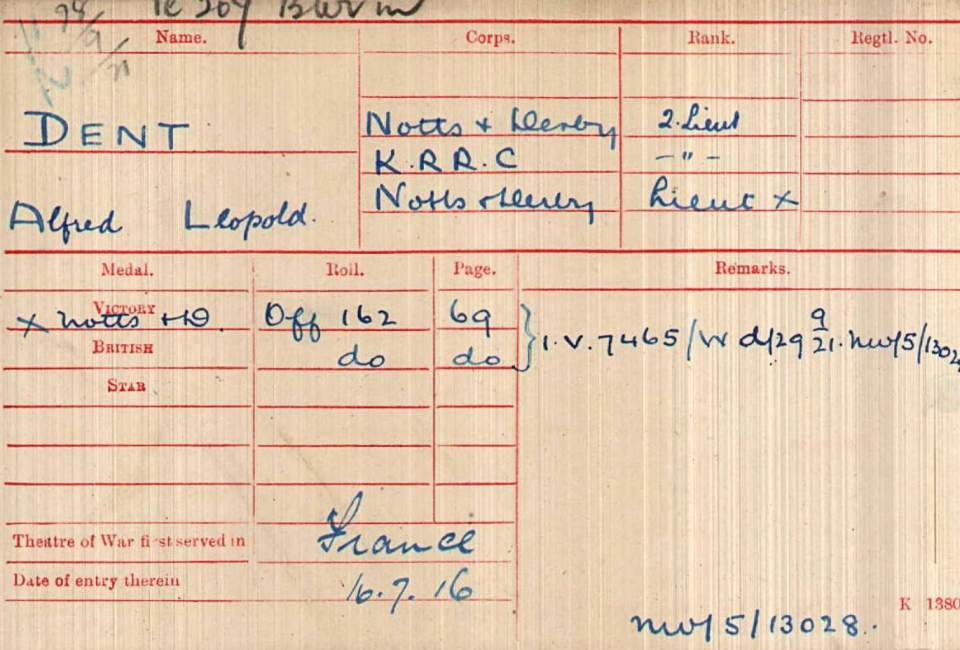 Name. Corps. Rank. Regtl. No.
DENT Notts + Derby 2.Lieut
K.R.R.C — " —
Alfred Leopold. Notts + Derby Lieut X
Medal. Roll. Page. Remarks.
VICTORY
X Notts + D. Off 162 69 } I.V. 7465/W d/29 9/21. NW/5/1302
BRITISH do do
STAR
Theatre of War first served in France
Date of entry therein 16.7.16
K 1380
NW/5/13028.